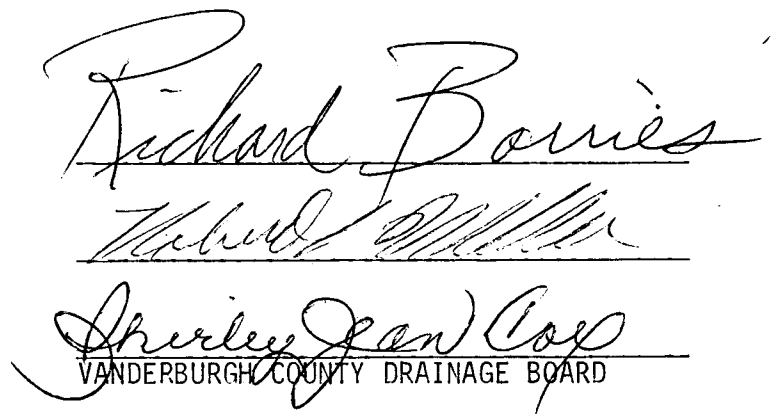 Richard Borries
Robert L Willner
Shirley Jean Cox
VANDERBURGH COUNTY DRAINAGE BOARD